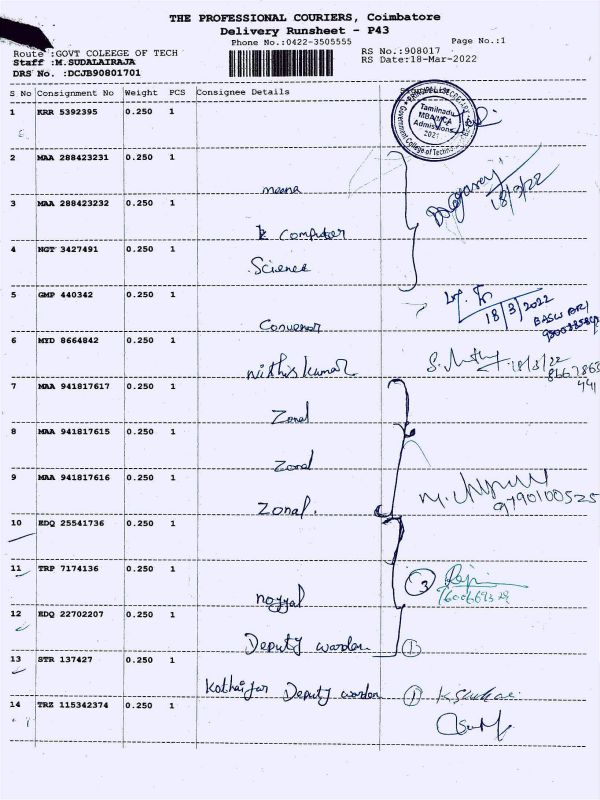 THE PROFESSIONAL COURIERS, Coimbatore
Delivery Runsheet - P43
Phone No.:0422-3505555 Page No.:1
Route :GOVT COLEEGE OF TECH RS No.:908017
Staff :M.SUDALAIRAJA RS Date:18-Mar-2022
DRS No. :DCJB90801701
S No Consignment No Weight PCS Consignee Details
1 KRR 5392395 0.250 1
Tamilnadu
MBA/MCA
Admissions
2021
Government College of Techno
2 MAA 288423231 0.250 1
meena
18/3/22
3 MAA 288423232 0.250 1
Computer
4 NGT 3427491 0.250 1
Science
5 GMP 440342 0.250 1
18/3/2022
Convenor
6 MYD 8664842 0.250 1
nithiskumar
18/3/22
7 MAA 941817617 0.250 1
Zonal
8 MAA 941817615 0.250 1
Zonal
9 MAA 941817616 0.250 1
Zonal.
9790100525
10 EDQ 25541736 0.250 1
11 TRP 7174136 0.250 1
3
noyyal
12 EDQ 22702207 0.250 1
Deputy warden 1
13 STR 137427 0.250 1
Deputy warden 1
14 TRZ 115342374 0.250 1